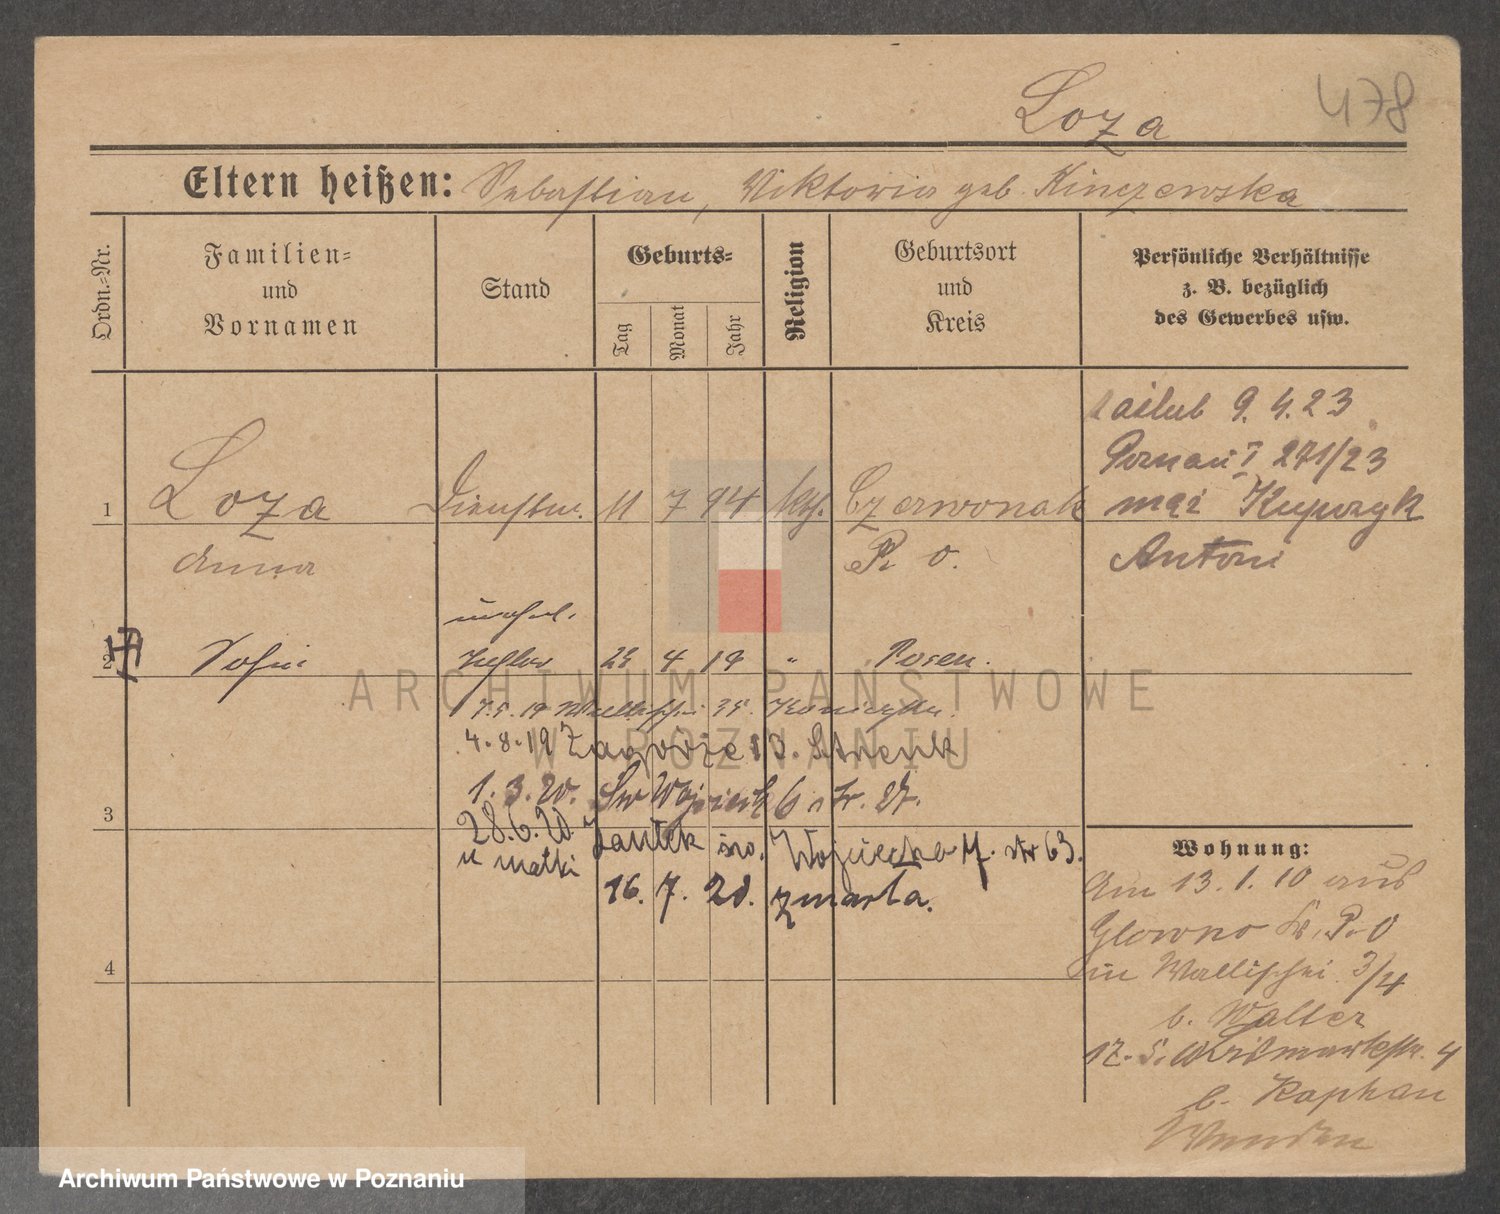 Loza
478
Eltern heißen: Sebastian, Viktoria geb. Kinczewska
Ordn.-Nr.
Familien-
und
Vornamen
Stand
Geburts-
Tag
Monat
Jahr
Religion
Geburtsort
und
Kreis
Persönliche Verhältnisse
z. B. bezüglich
des Gewerbes usw.
1
Loza
Anna
Dienstm.
11 7 94 kth.
Czerwonak
P. O.
9.4.23
Poznań I 271/23
mąż Kupczyk
Antoni
2
Sofie
unehel.
Tochter
4 19 "
Posen.
7.5.19 Wallischei
4.8.19 Zagórze 13.
1.3.20. Św Wojciech 6
28.6.20 Jantek św. Wojciecha 63.
u matki
16. 7. 20. zmarła.
3
4
Wohnung:
Am 13.1.10 aus
Glowno Kr. P. O
in Wallischei 3/4
b. Walter
17.5. Bismarckstr. 4
b. Kaphan
ARCHIWUM PAŃSTWOWE
W POZNANIU
Archiwum Państwowe w Poznaniu